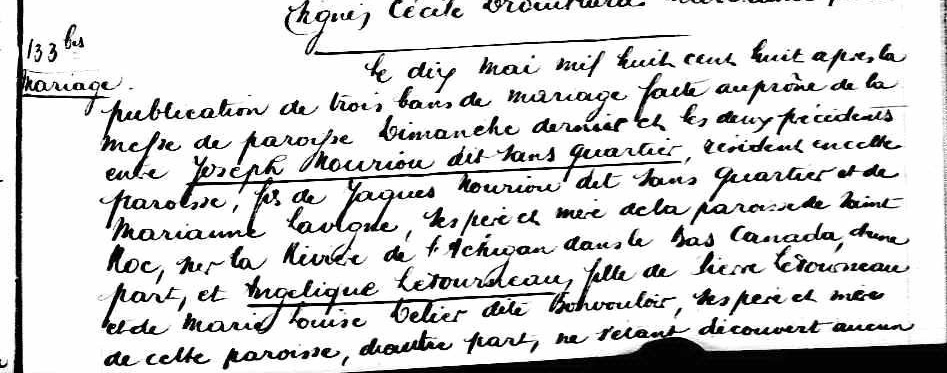 (Signé) Cécile
133 bis
Mariage.
Le dix mai mil huit cent huit après la
publication de trois bans de mariage faite au prône de la
messe de paroisse Dimanche dernier et les deux précédents
entre Joseph Mouriou dit Sans Quartier, résident en cette
paroisse, fils de Jaques Mouriou dit Sans Quartier et de
Marianne Lavigne, ses père et mère de la paroisse de Saint
Roc, sur la Rivière de l'Achigan dans le Bas Canada, d'une
part, et Angelique LeTourneau, fille de Pierre LeTourneau
et de Marie Louise Celier dite Bonvouloir, ses père et mère
de cette paroisse, d'autre part, ne s'étant découvert aucun